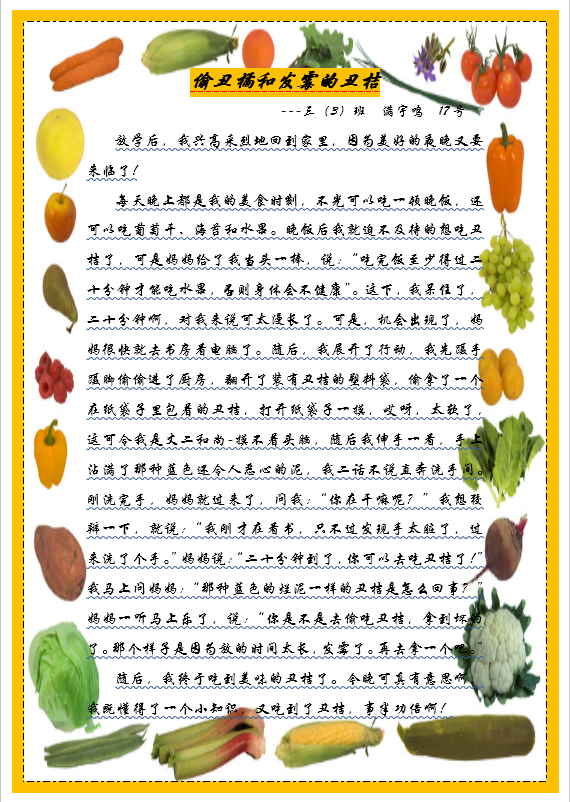 偷丑橘和发霉的丑桔
---三（3）班 满宇鸣 17号
放学后，我兴高采烈地回到家里，因为美好的夜晚又要
来临了！
每天晚上都是我的美食时刻，不光可以吃一顿晚饭，还
可以吃葡萄干、海苔和水果。晚饭后我就迫不及待的想吃丑
桔了，可是妈妈给了我当头一棒，说：“吃完饭至少得过二
十分钟才能吃水果，否则身体会不健康”。这下，我呆住了，
二十分钟啊，对我来说可太漫长了。可是，机会出现了，妈
妈很快就去书房看电脑了。随后，我展开了行动，我先蹑手
蹑脚偷偷进了厨房，翻开了装有丑桔的塑料袋，偷拿了一个
在纸袋子里包着的丑桔，打开纸袋子一摸，哎呀，太软了，
这可令我是丈二和尚-摸不着头脑，随后我伸手一看，手上
沾满了那种蓝色还令人恶心的泥，我二话不说直奔洗手间。
刚洗完手，妈妈就过来了，问我：“你在干嘛呢？”我想狡
辩一下，就说：“我刚才在看书，只不过发现手太脏了，过
来洗了个手。”妈妈说：“二十分钟到了，你可以去吃丑桔了！”
我马上问妈妈：“那种蓝色的烂泥一样的丑桔是怎么回事？”
妈妈一听马上乐了，说：“你是不是去偷吃丑桔，拿到坏的
了。那个样子是因为放的时间太长，发霉了。再去拿一个吧。”
随后，我终于吃到美味的丑桔了。今晚可真有意思啊，
我既懂得了一个小知识，又吃到了丑桔，事半功倍啊！